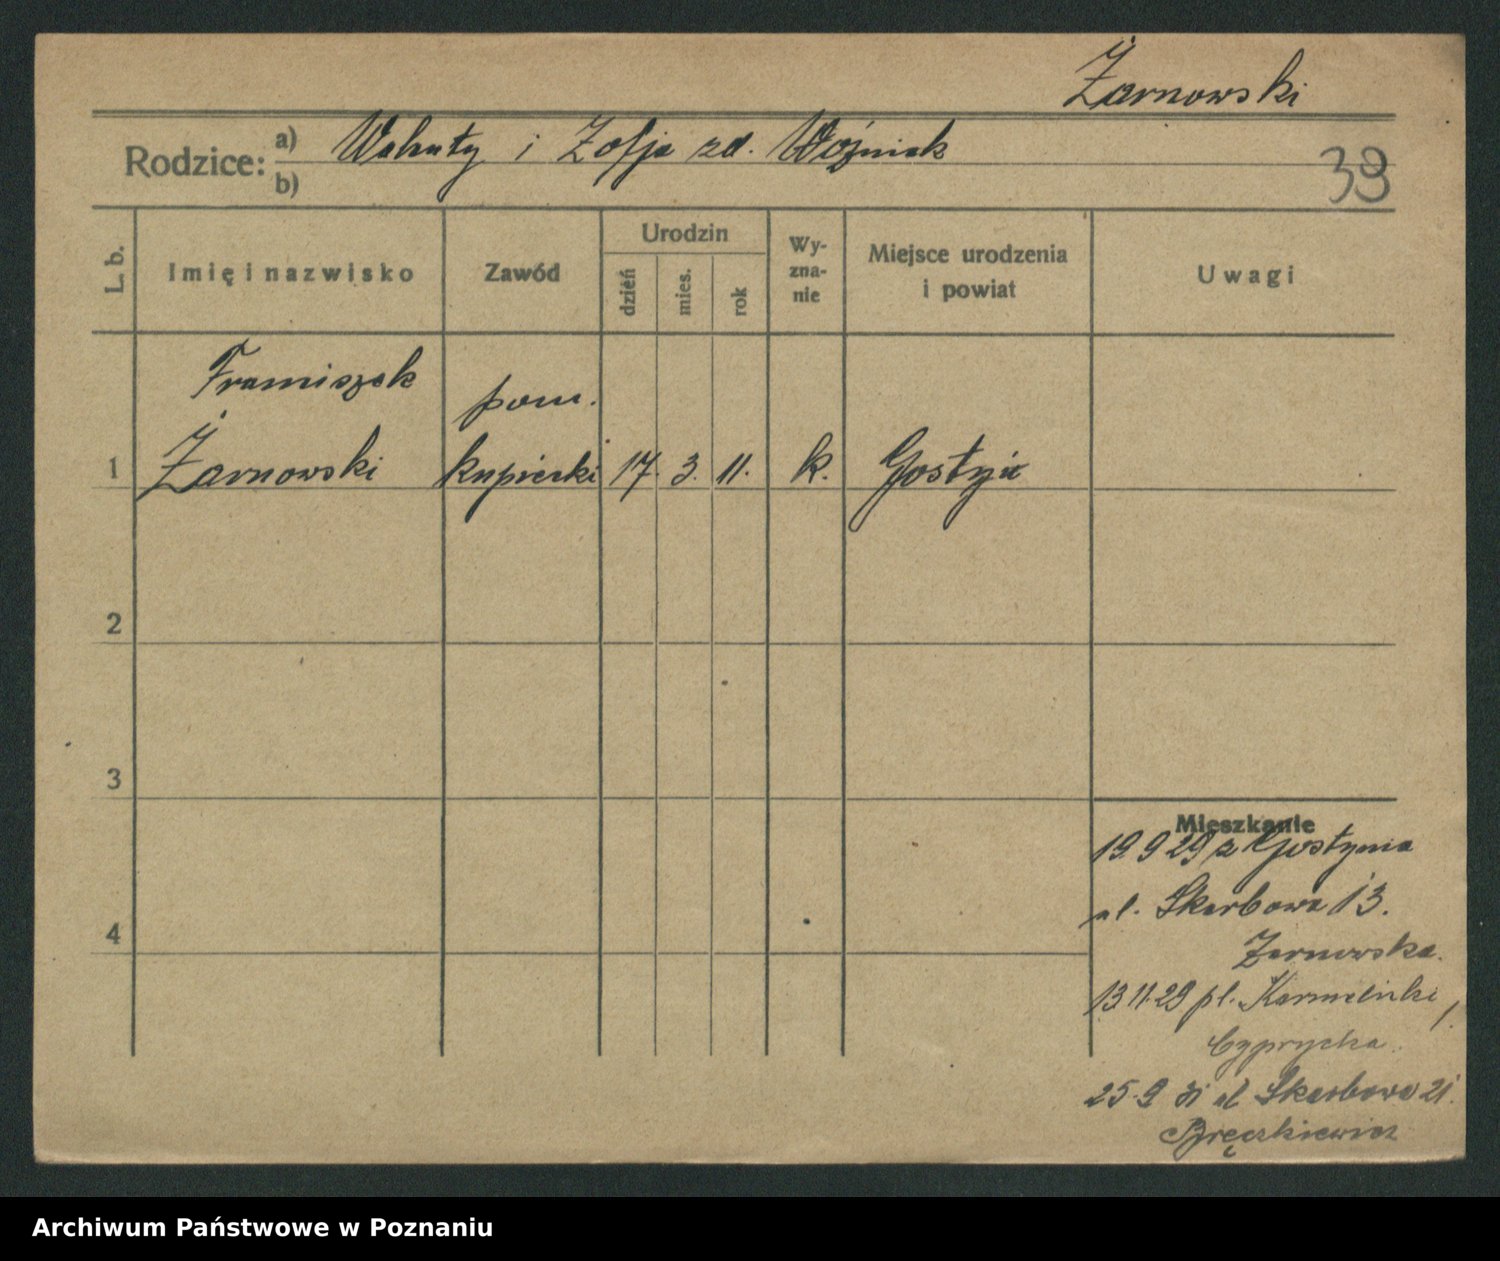 Żarnowski
Rodzice: a) Walenty i Zofja zd. Woźniak
b)
39
L. b.
Imię i nazwisko
Zawód
Urodzin
dzień
mies.
rok
Wy-
zna-
nie
Miejsce urodzenia
i powiat
Uwagi
Franciszek
pom.
1 Żarnowski kupiecki 17. 3. 11. k. Gostyń
2
3
4
Mieszkanie
19 9 29 z Gostynia
ul. Skarbowa 13.
Żarnowska.
13.11.29 pl. Karmelicki
25.9 31 ul Skarbowa 21.
Archiwum Państwowe w Poznaniu